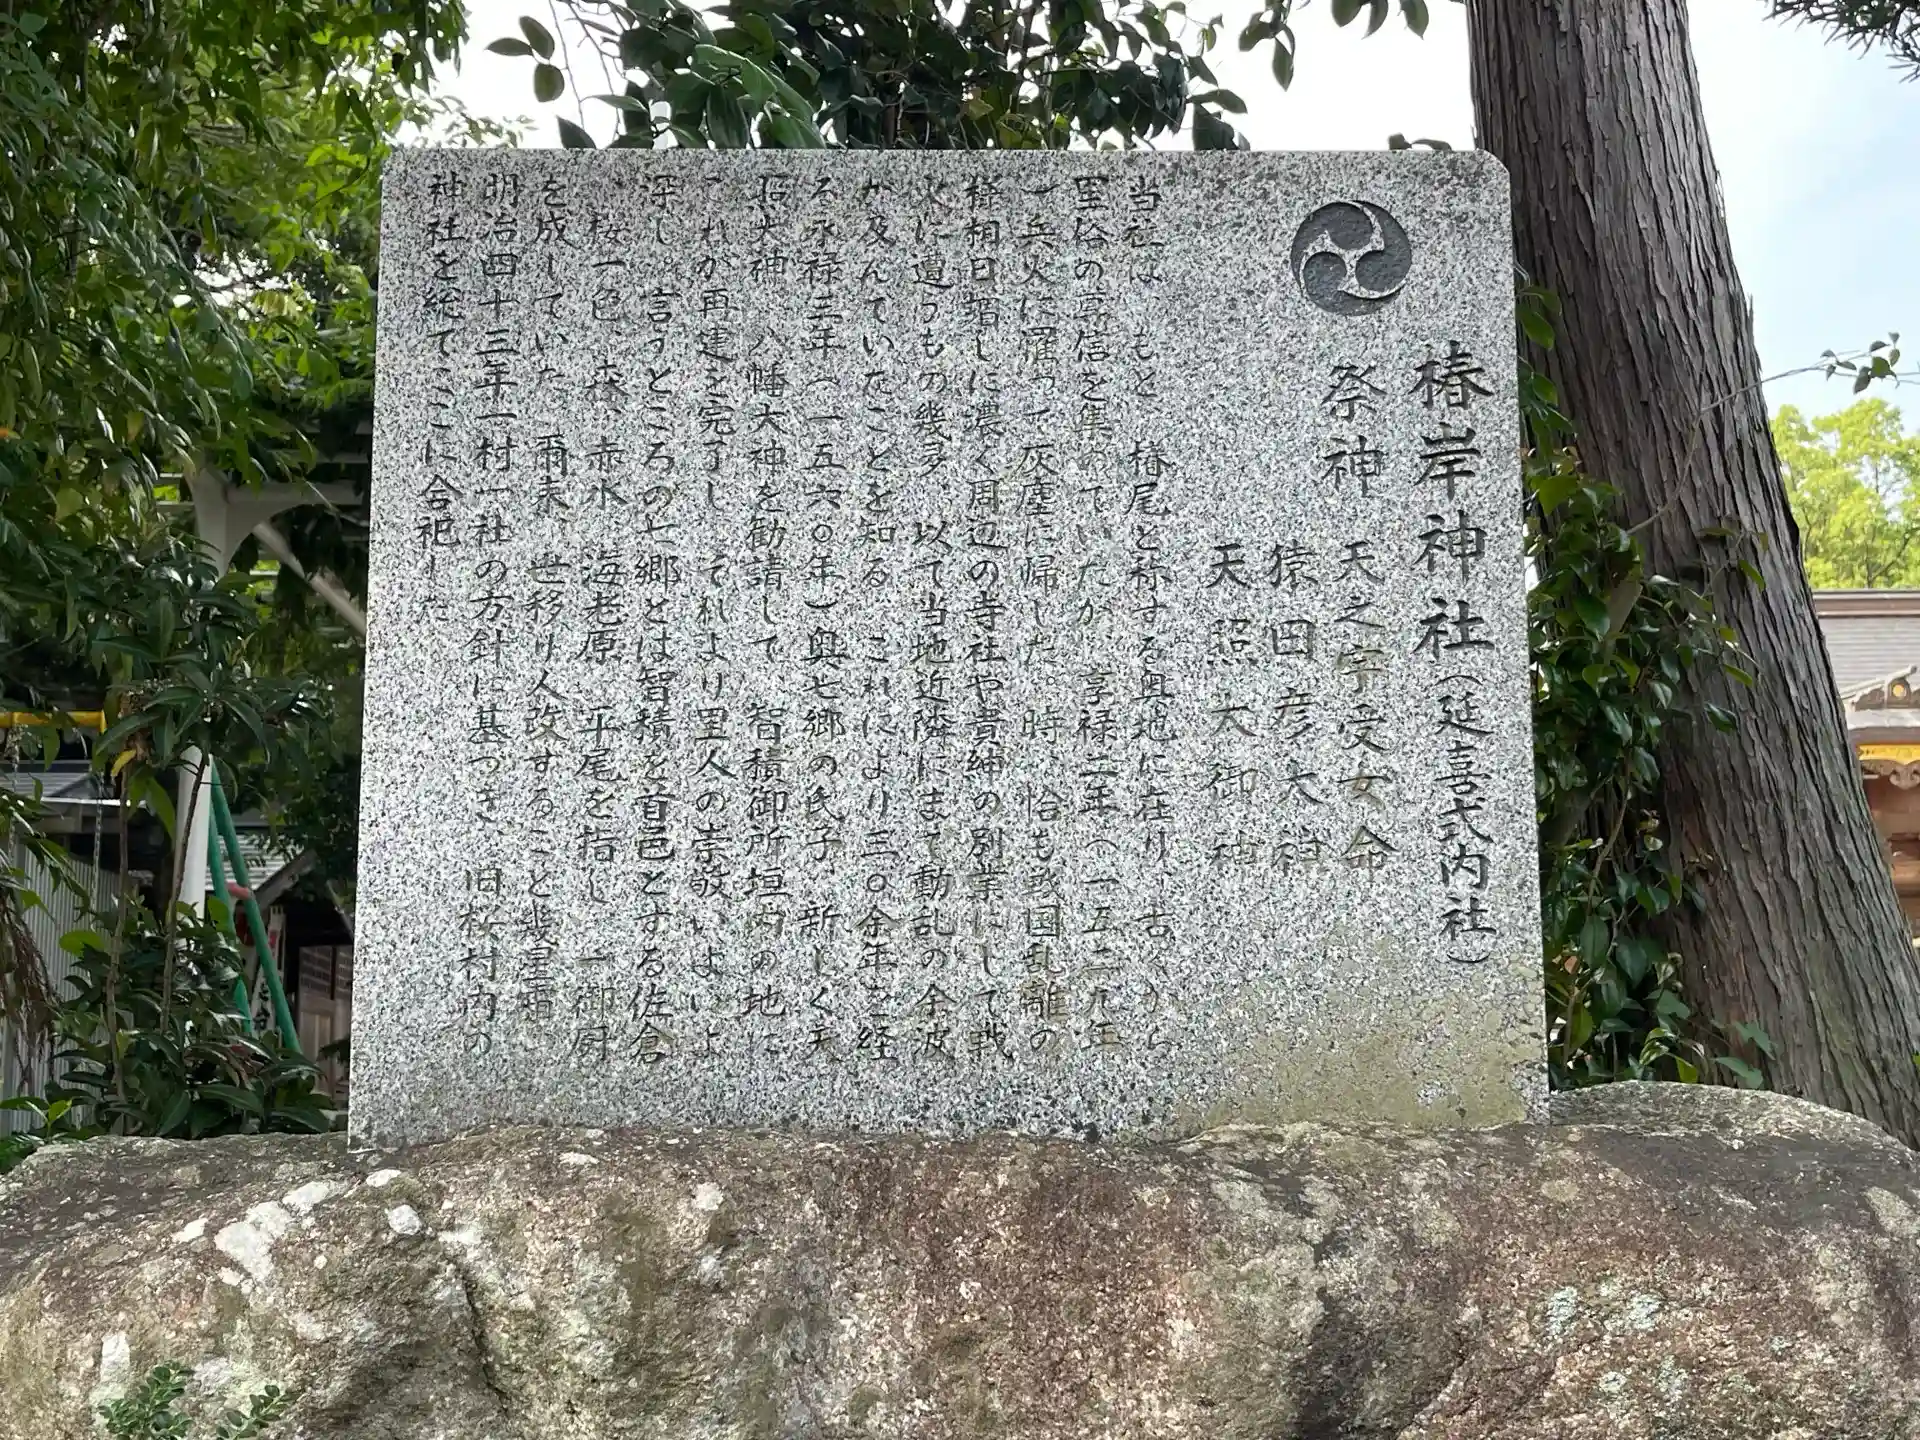 椿岸神社(延喜式内社)
祭神 天之宇受女命
猿田彦大神
天照大御神
当社は、もと、椿尾と称する奥地に在り、古くから
里俗の享信を集めていたが、享禄二年(一五二九年
)兵火に罹って灰塵に帰した。時、恰も戦国乱離の
様相日増しに濃く周辺の寺社や貴紳の別業にして戦
火に遭うもの幾多、以て当地近隣にまで動乱の余波
が及んでいたことを知る。これにより三〇余年を経
る永禄三年(一五六〇年)奥七郷の氏子、新しく天
照大神、八幡大神を勧請して、智積御所垣内の地に
これが再建を完了し、それより里人の崇敬いよいよ
深し。言うところの七郷とは智積を首邑とする佐倉
、桜一色、森、赤水、海老原、平尾を指し、一御厨
を成していた。爾来、世移り人改すること幾星霜、
明治四十三年一村一社の方針に基づき、旧桜村内の
神社を総てここに合祀した。